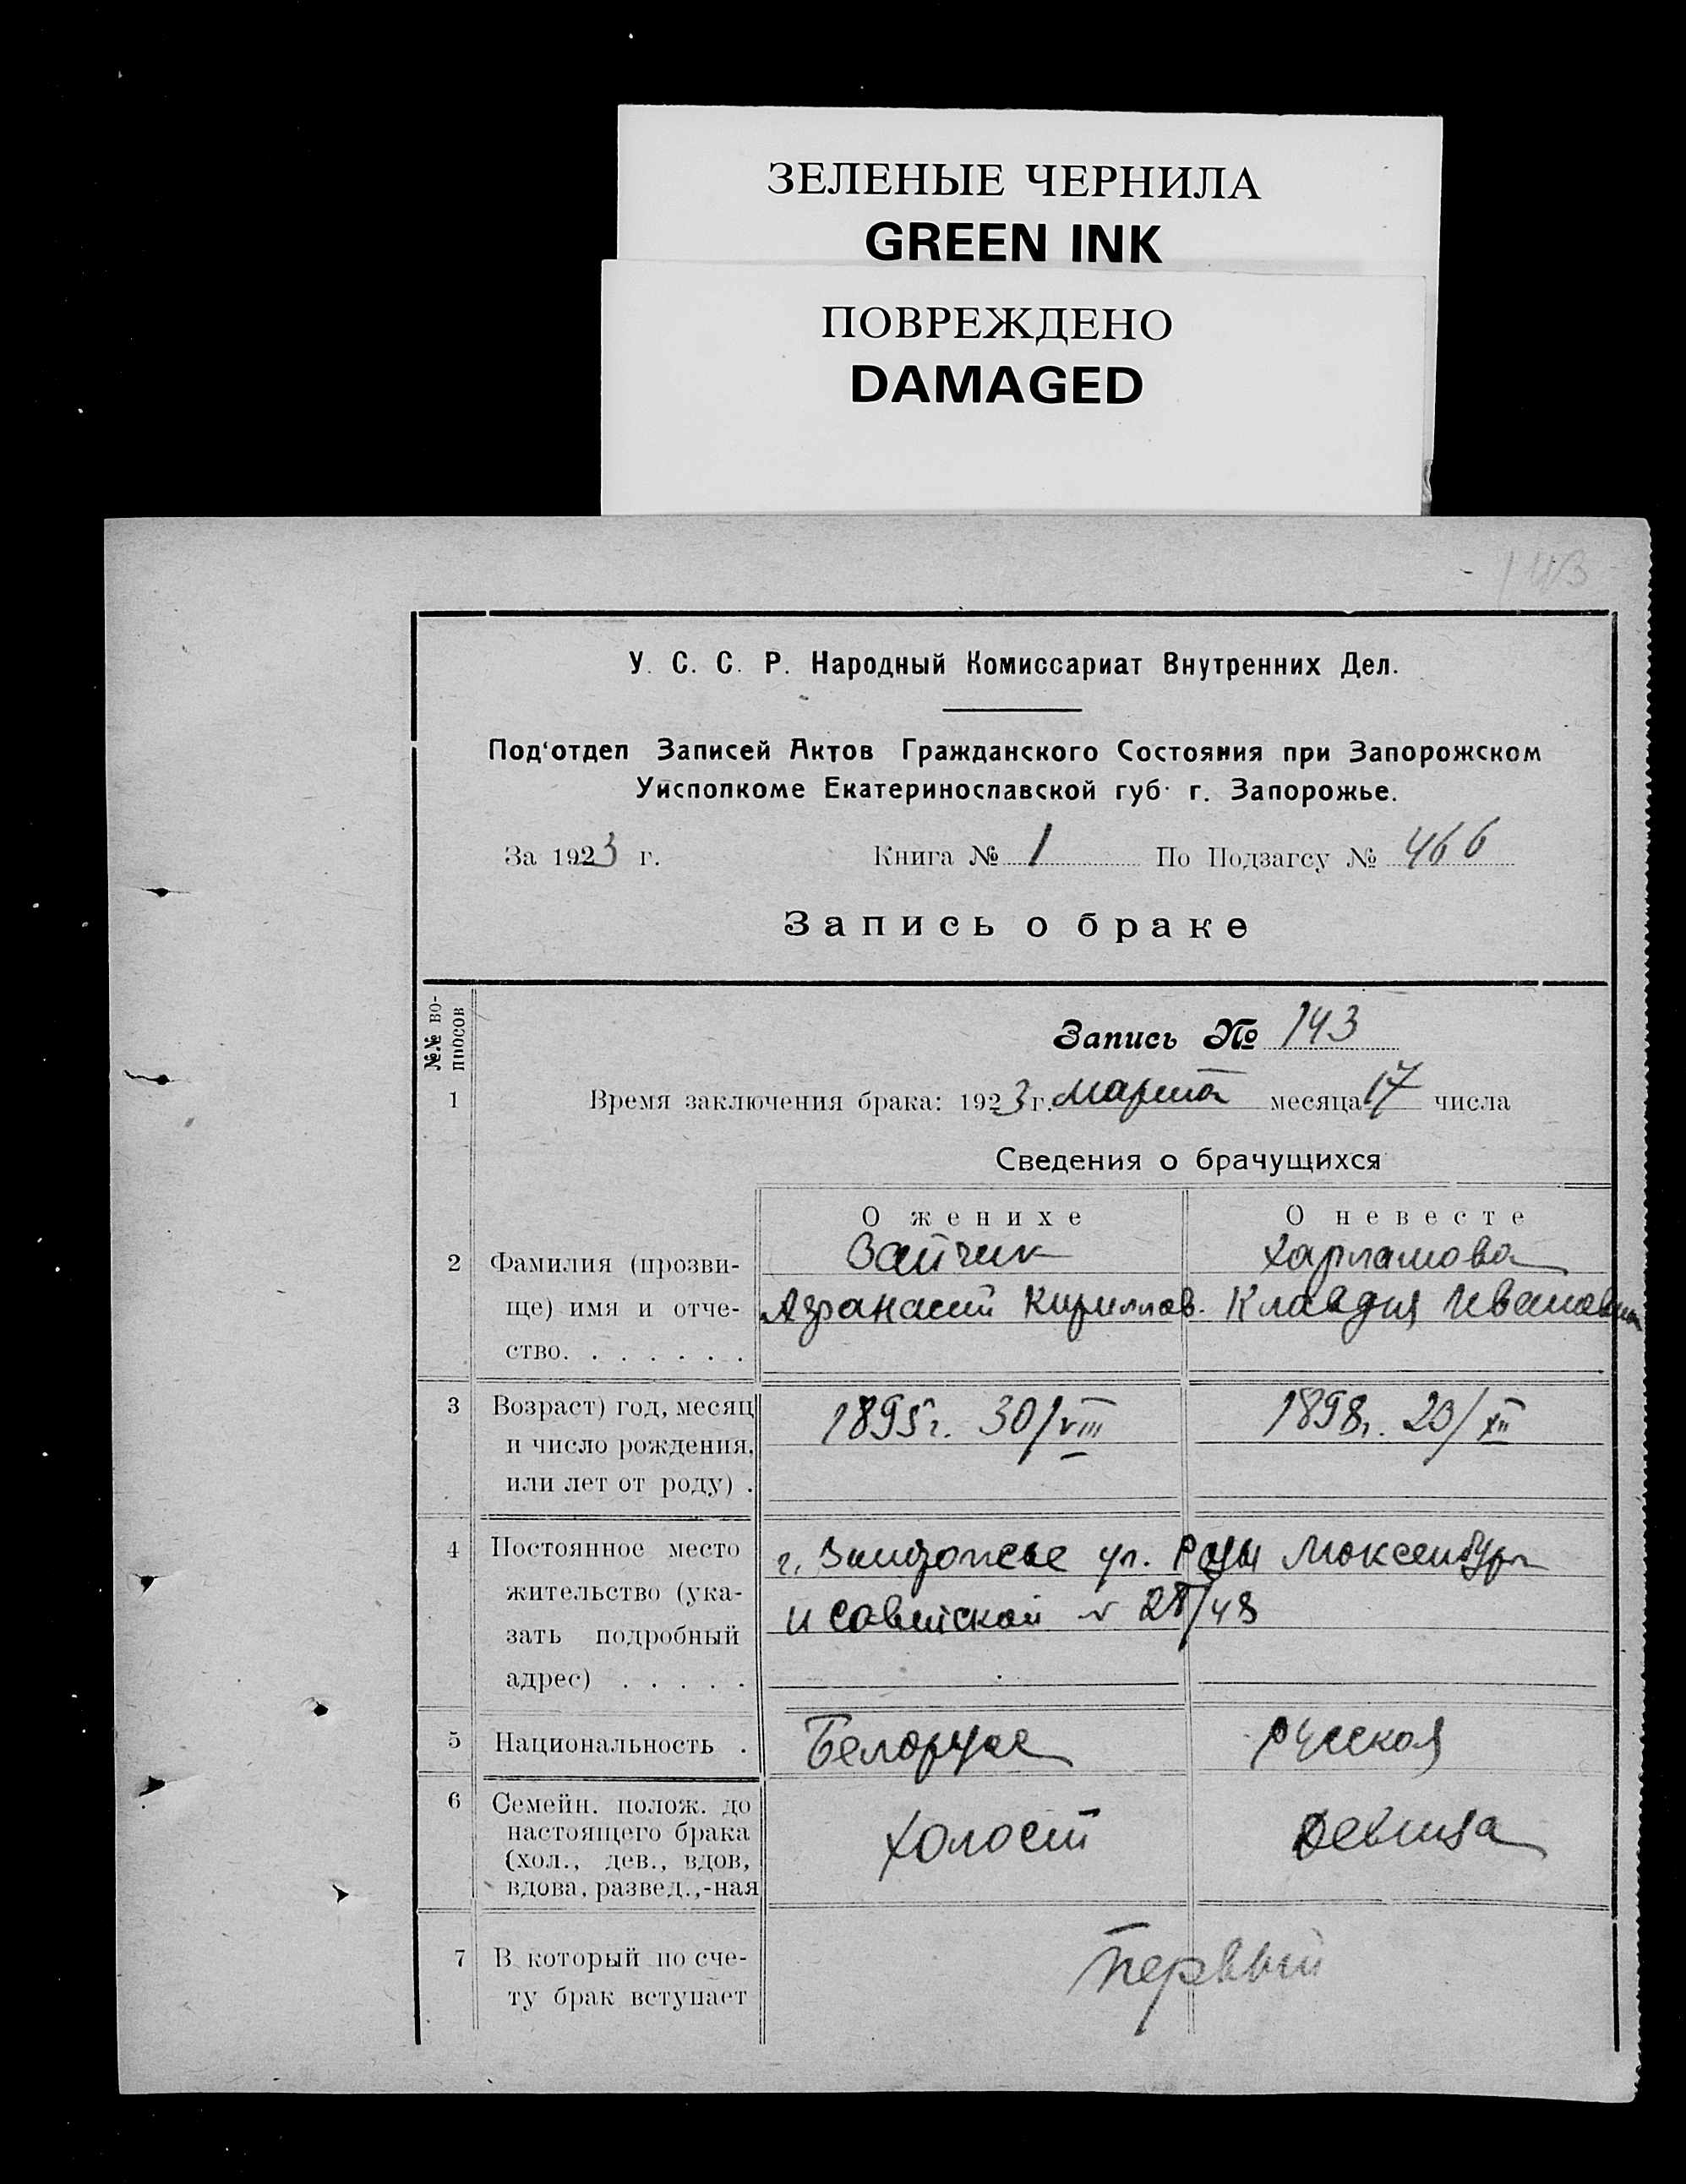 ЗЕЛЕНЫЕ ЧЕРНИЛА
GREEN INK
ПОВРЕЖДЕНО
DAMAGED
143
У. С. С. Р. Народный Комиссариат Внутренних Дел.
Под'отдел Записей Актов Гражданского Состояния при Запорожском
Уисполкоме Екатеринославской губ. г. Запорожье.
За 1923 г. Книга № 1 По Подзагсу № 466
Запись о браке
№№ во-
просов
Запись № 143
1 Время заключения брака: 1923 г. марта месяца 17 числа
Сведения о брачущихся
О женихе О невесте
2 Фамилия (прозви- Зайчик Харламова
ще) имя и отче- Афанасий Кириллов. Клавдия Ивановна
ство. . . . . . .
3 Возраст) год, месяц 1895 г. 30/VIII 1898 г. 23/XII
и число рождения,
или лет от роду) .
4 Постоянное место г. Запорожье ул. Розы Люксембург
жительство (ука- и Советской № 28/48
зать подробный
адрес) . . . . .
5 Национальность . Белорус русская
6 Семейн. полож. до
настоящего брака
(хол., дев., вдов, холост девица
вдова, развед.,-ная
7 В который по сче- первый
ту брак вступает